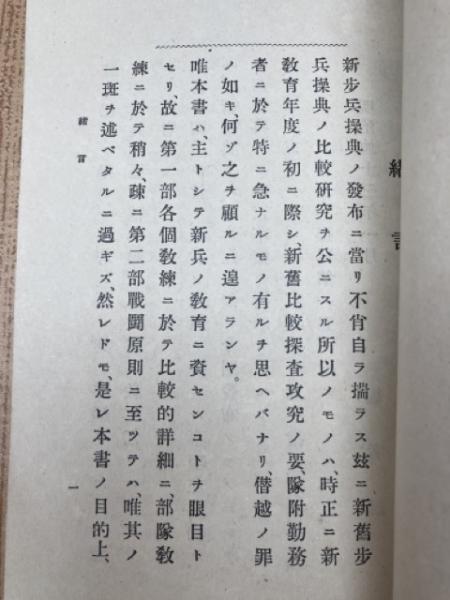 緒言
新步兵操典ノ發布ニ當リ不肖自ラ揣ラス玆ニ新舊步
兵操典ノ比較硏究ヲ公ニスル所以ノモノハ、時正ニ新
敎育年度ノ初ニ際シ、新舊比較探査攻究ノ要、隊附勤務
者ニ於テ特ニ急ナルモノ有ルヲ思ヘバナリ、僭越ノ罪
ノ如キ、何ゾ之ヲ顧ルニ遑アランヤ。
唯本書ハ、主トシテ新兵ノ敎育ニ資センコトヲ眼目ト
セリ、故ニ第一部各個敎練ニ於テ比較的詳細ニ、部隊敎
練ニ於テ稍々、疎ニ第二部戰鬪原則ニ至ツテハ、唯其ノ
一斑ヲ述ベタルニ過ギズ、然レドモ、是レ本書ノ目的上、
緒言
一